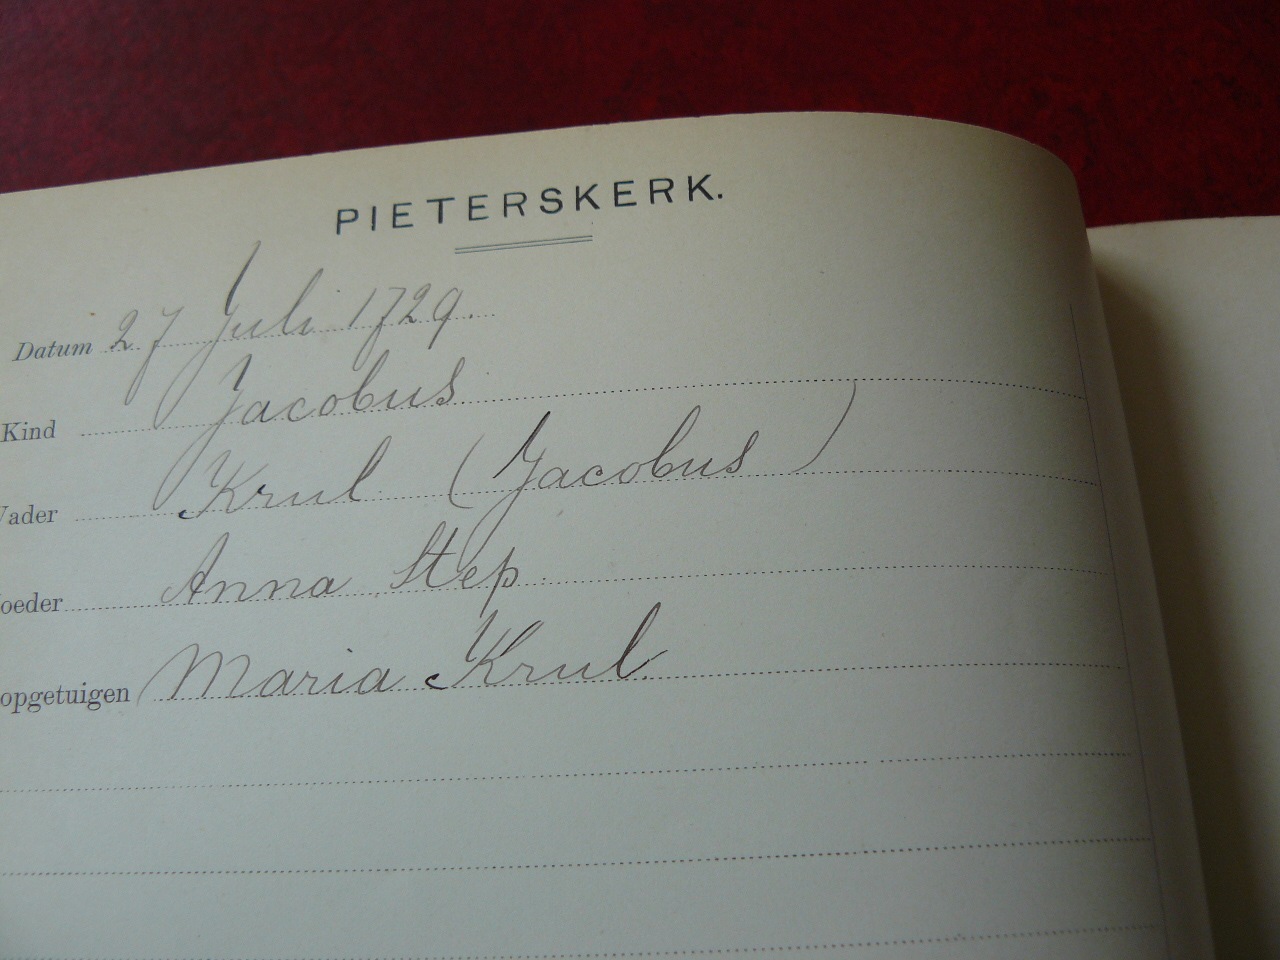 PIETERSKERK.
Datum 27 Juli 1729.
Kind Jacobus
Vader Krul (Jacobus)
oeder Anna Step
opgetuigen Maria Krul.